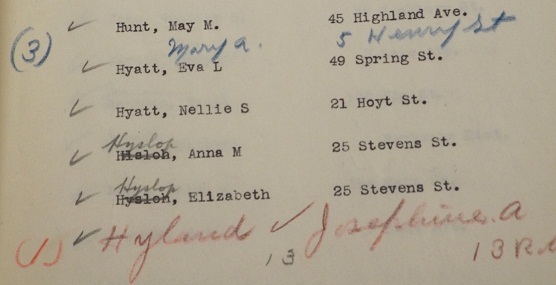 ✓ Hunt, May M. 45 Highland Ave.
(3) Mary A. 5 Henry St
✓ Hyatt, Eva L 49 Spring St.
✓ Hyatt, Nellie S 21 Hoyt St.
Hyslop
✓ Hisloh, Anna M 25 Stevens St.
Hyslop
✓ Hysloh, Elizabeth 25 Stevens St.
(1) ✓ Hyland ✓ Josephine A
13 13